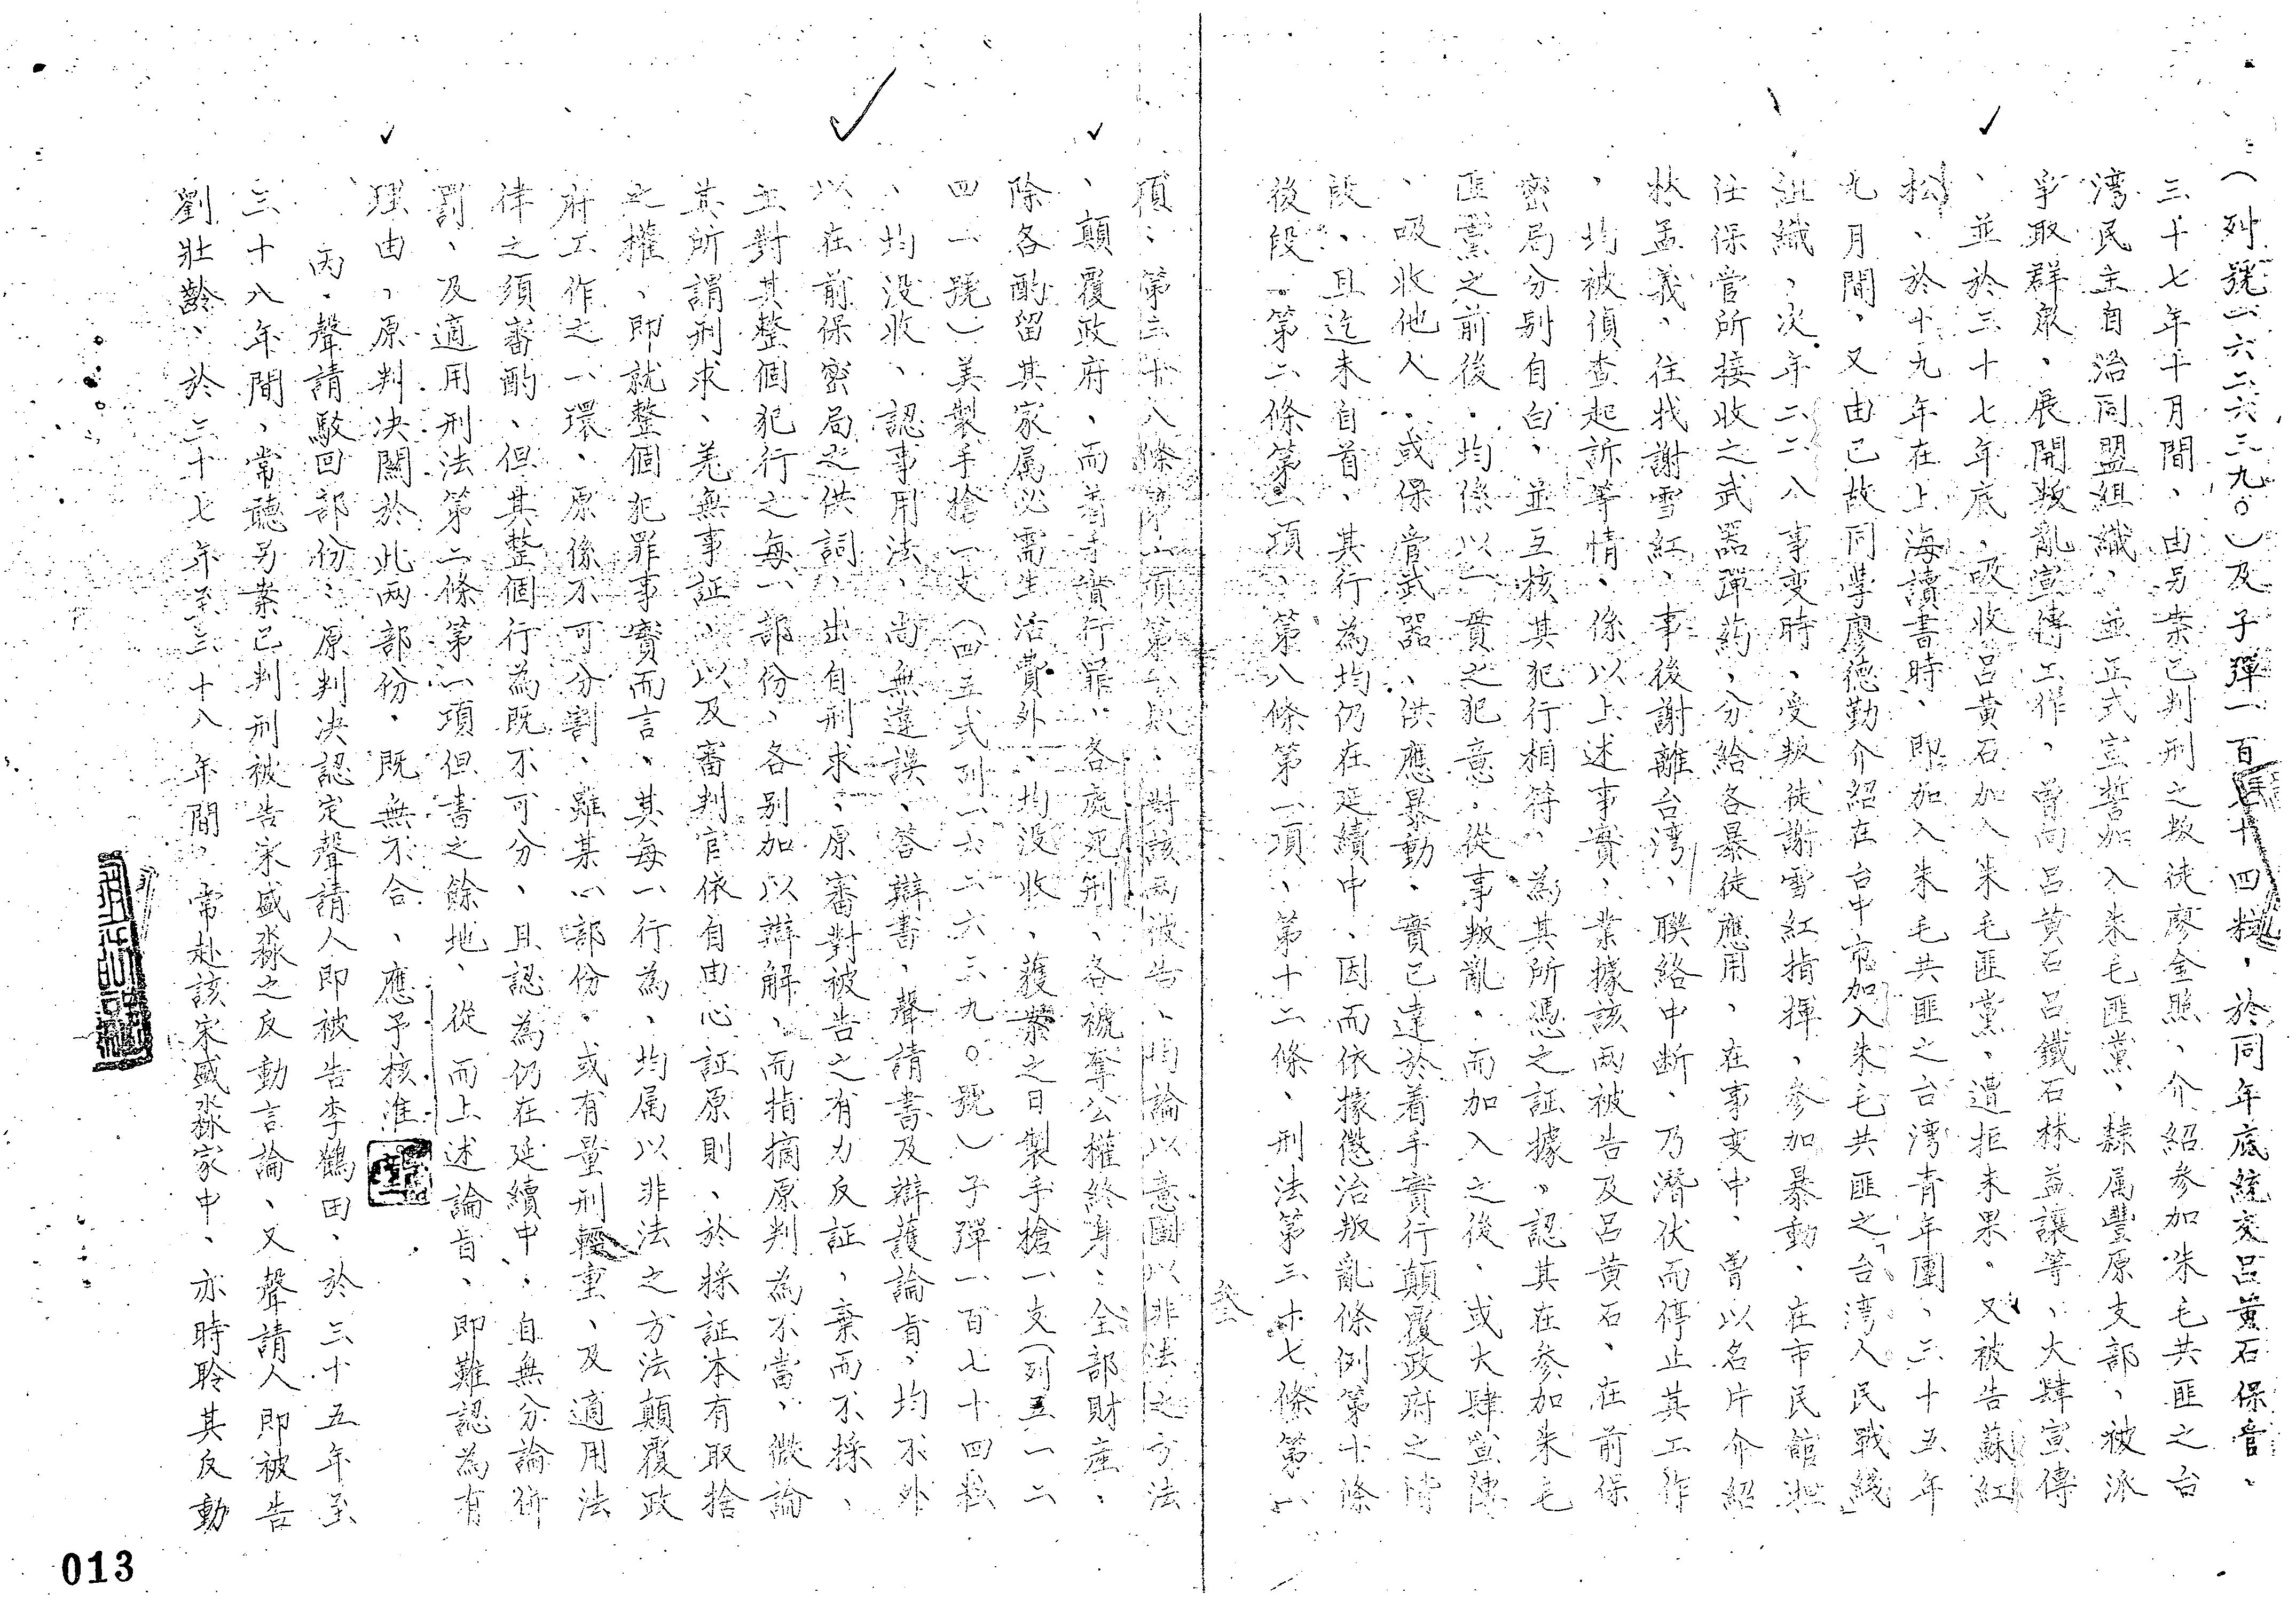 （列號一六二六三九〇）及子彈一百七十四粒，於同年底統交呂黃石保管、
三十七年十月間、由另案已判刑之叛徒廖金照、介紹參加朱毛共匪之台
湾民主自治同盟組織、並正式宣誓加入朱毛匪黨、隸属豐原支部、被派
爭取群眾、展開叛亂宣傳工作、曾向呂黃石呂鐵石林益讓等、大肆宣傳
、並於三十七年底、吸收呂黃石加入朱毛匪黨、遭拒未果。又被告蘇紅
松、於十九年在上海讀書時、即加入朱毛共匪之台湾青年團、三十五年
九月間、又由已故同學廖德勤介紹在台中市加入朱毛共匪之「台湾人民戰綫」
組織、次年二二八事变時、受叛徒謝雪紅指揮、參加暴動、在市民館担
任保管所接收之武器彈葯、分給各暴徒應用、在事变中、曾以名片介紹
林孟義、往找謝雪紅、事後謝離台湾、聯絡中断、乃潛伏而停止其工作
、均被偵查起訴等情、係以上述事實、業據該兩被告及呂黃石、在前保
密局分別自白、並互核其犯行相符、為其所憑之証據、認其在參加朱毛
匪黨之前後、均係以一貫之犯意、從事叛亂、而加入之後、或大肆宣傳
、吸收他人、或保管武器、供應暴動、實已達於着手實行顛覆政府之階
段、且迄未自首、其行為均仍在延續中、因而依據懲治叛亂條例第十條
後段、第二條第一項、第八條第一項、第十二條、刑法第三十七條第一
叁
項、第三十八條第一項第二款、對該兩被告、均論以意圖以非法之方法
、顛覆政府、而着手實行罪、各處死刑、各褫奪公權終身、全部財產、
除各酌留其家属必需生活費外、均没收、獲案之日製手槍一支（列五一二
四一號）美製手槍一支（四五式列一六二六三九〇號）子彈一百七十四粒
、均没收、認事用法、尚無違誤、答辯書、聲請書及辯護論旨、均不外
以在前保密局之供詞、出自刑求、原審對被告之有力反証、棄而不採、
並對其整個犯行之每一部份、各别加以辯解、而指摘原判為不當、微論
其所謂刑求、羌無事証、以及審判官依自由心証原則、於採証本有取捨
之權、即就整個犯罪事實而言、其每一行為、均属以非法之方法顛覆政
府工作之一環、原係不可分割、雖某一部份、或有量刑輕重、及適用法
律之須審酌、但其整個行為既不可分、且認為仍在延續中、自無分論併
罰、及適用刑法第二條第一項但書之餘地、從而上述論旨、即難認為有
理由、原判决關於此兩部份、既無不合、應予核准
丙、聲請駁回部份：原判决認定聲請人即被告李鶴田、於三十五年至
三十八年間、常聽另案已判刑被告宋盛淼之反動言論、又聲請人即被告
劉壯齡、於三十七年至三十八年間、常赴該宋盛淼家中、亦時聆其反動
013